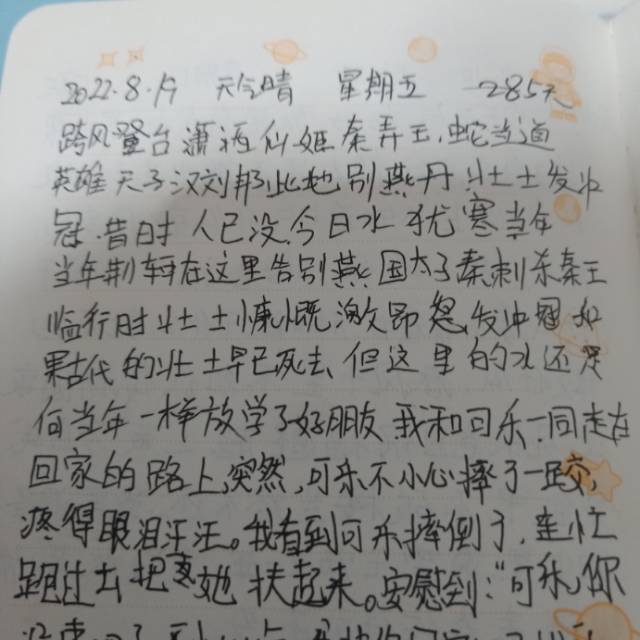 2022.8.19 天气晴 星期五 285元
跨风登台潇洒仙姬秦弄玉,蛇当道
英雄天子汉刘邦此地别燕丹壮士发冲
冠.昔日时人已没,今日水犹寒当年
当年荆轲在这里告别燕国太子秦刺杀秦王
临行时壮士慷慨激昂怒发冲冠如
果古代的壮士早已死去,但这里的水还是
向当年一样放学了好朋友我和可乐一同走在
回家的路上,突然,可乐不小心摔了一跤,
疼得眼泪汪汪。我看到可乐摔倒了,连忙
跑过去把她扶起来。安慰到:“可乐,你